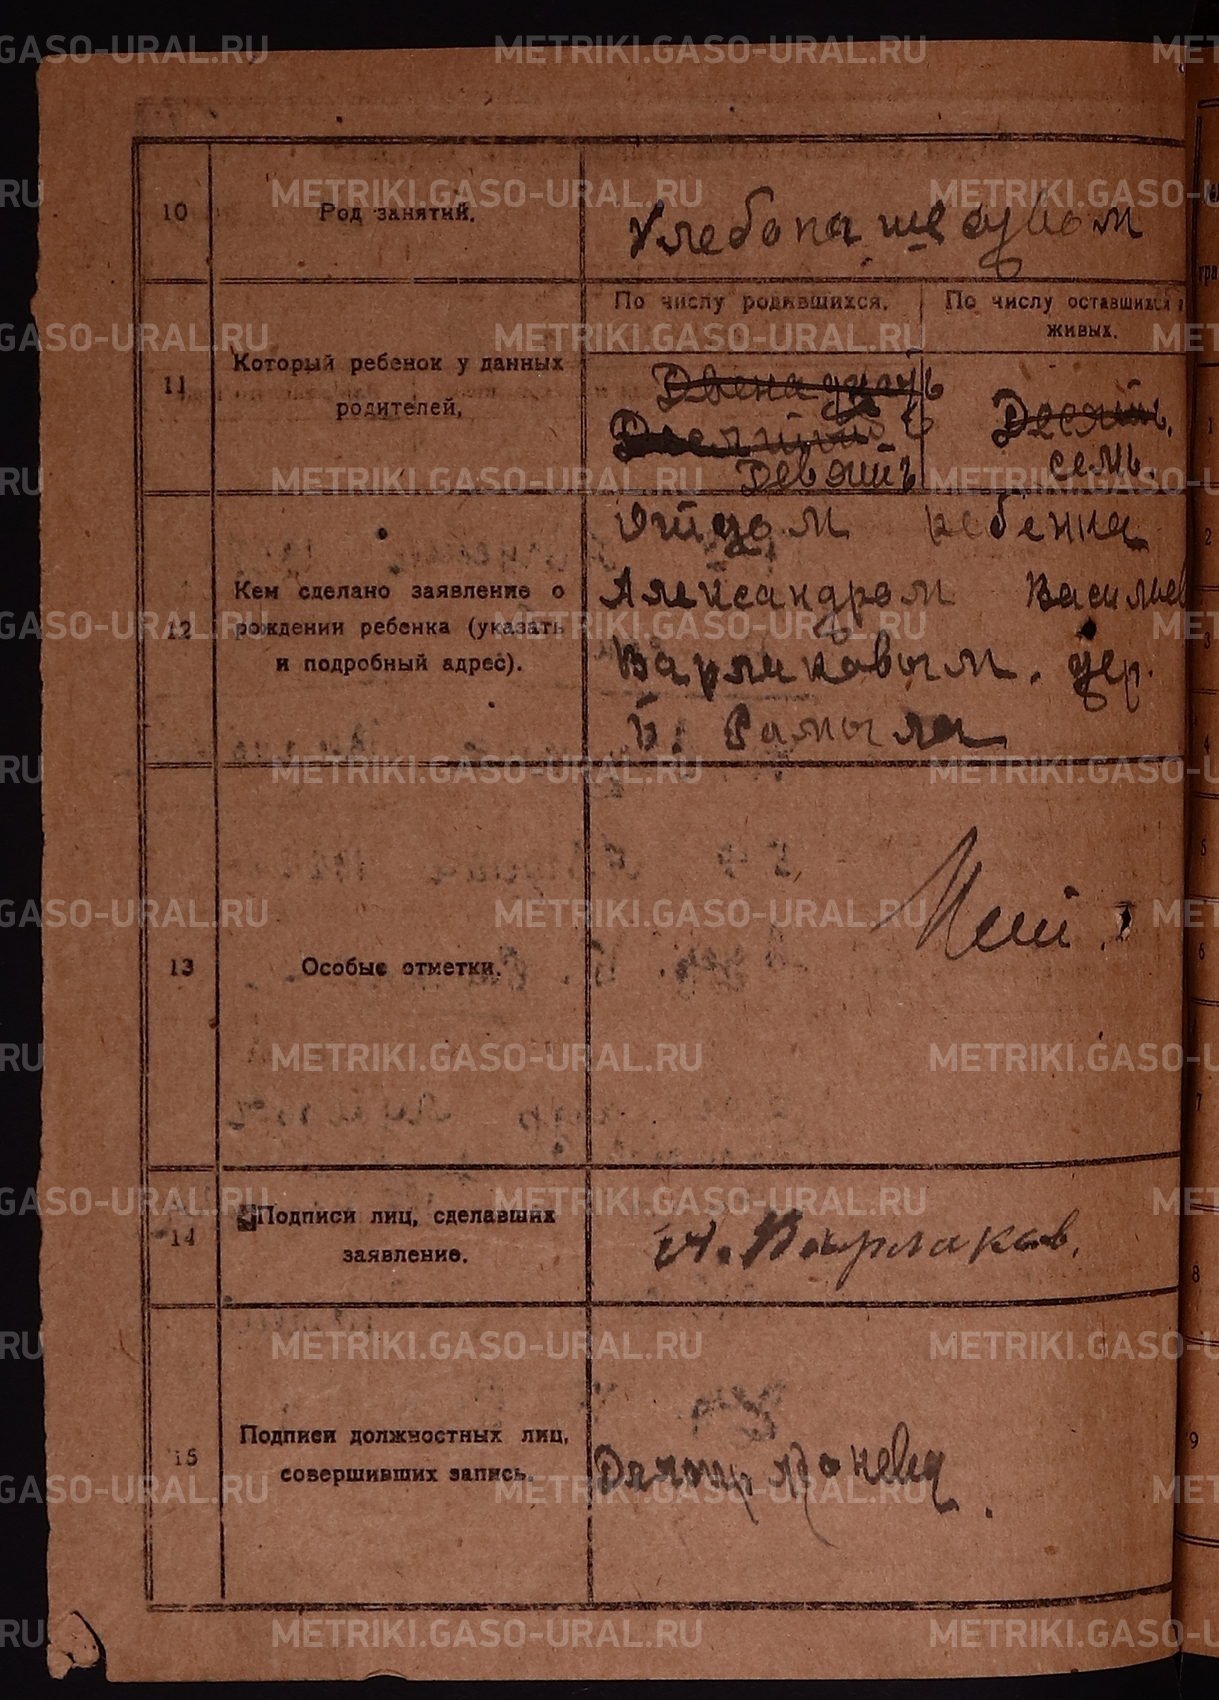 METRIKI.GASO-URAL.RU
10
Род занятий.
Хлебопашеством
11
Который ребенок у данных
родителей,
По числу родившихся.
По числу оставшихся
живых.
Двенадцать
Девять
Десять.
семь.
12
Кем сделано заявление о
рождении ребенка (указать
и подробный адрес).
Отцом ребенка
Александром Васильев
Варлаковым. дер.
Б. Рамыла
13
Особые отметки.
Нет.
14
Подписи лиц, сделавших
заявление.
А. Варлаков.
15
Подписи должностных лиц,
совершивших запись.